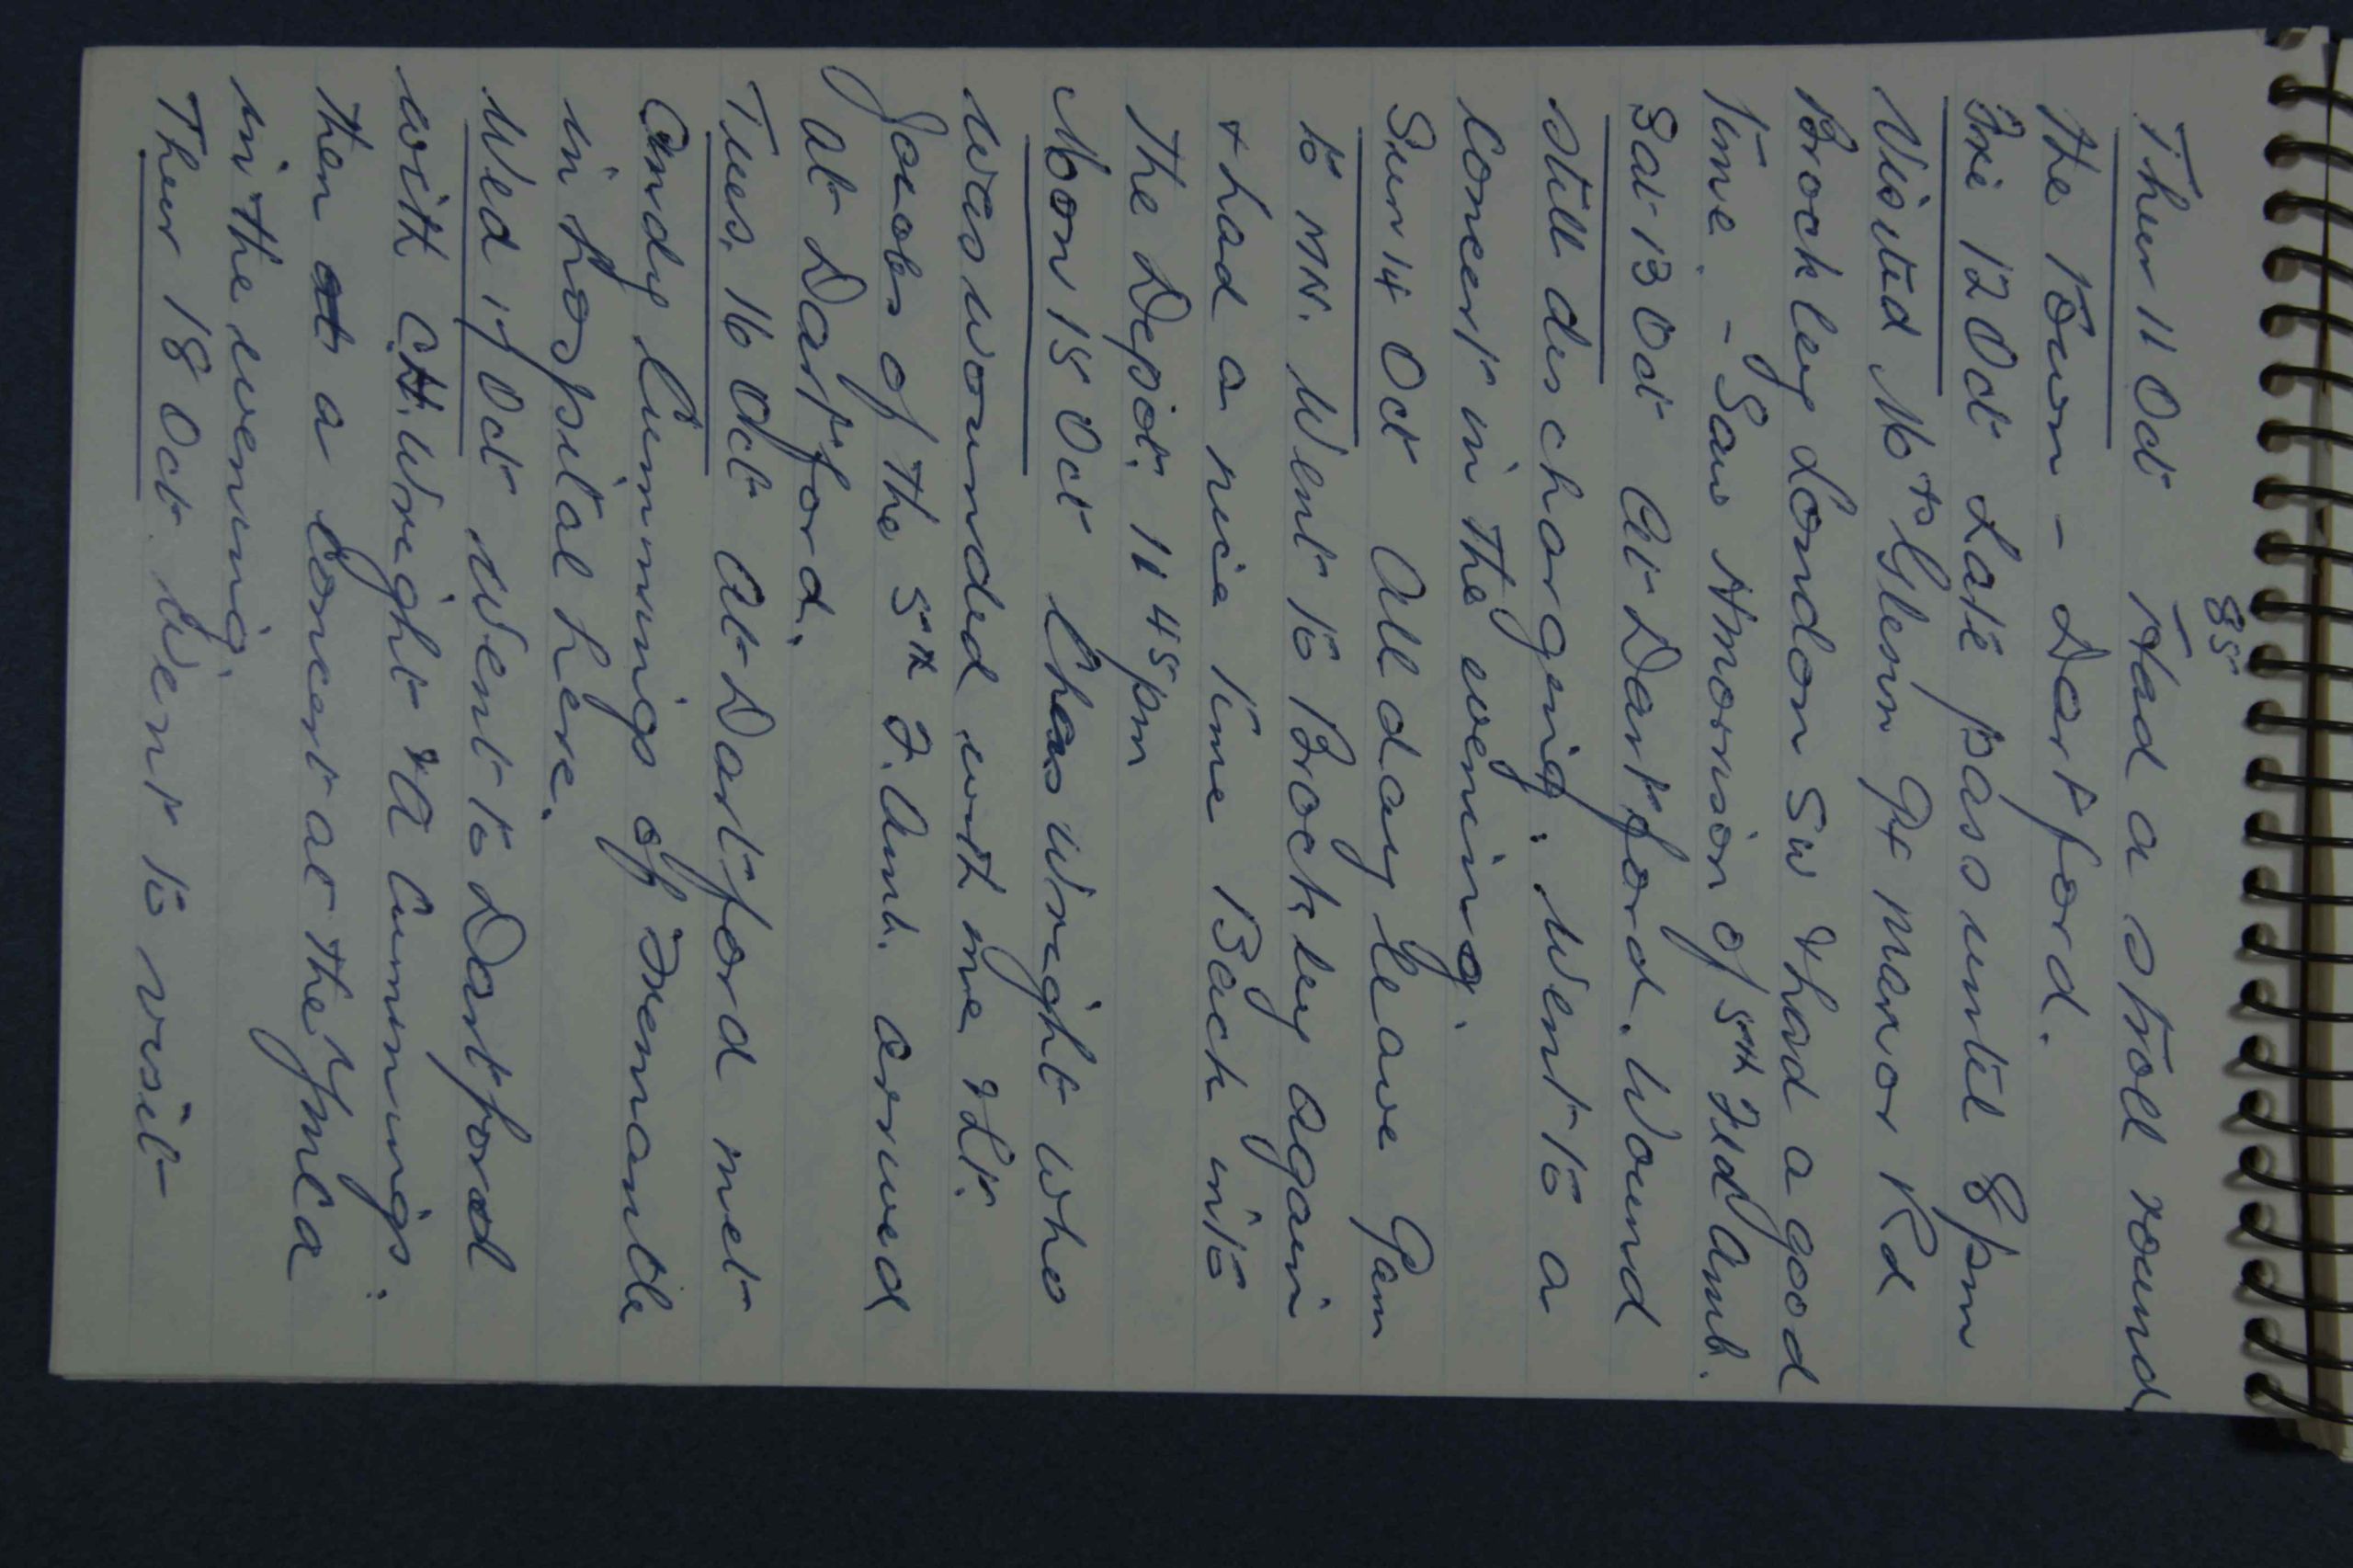 85
Thur 11 Oct Had a stroll round
the Town - Dartford.
Fri 12 Oct Late pass until 8 pm
Visited Mrs Glenn 94 Manor Rd
Brockley London SW & had a good
time. - Saw Amornsion of 5th Fld Amb.
Sat 13 Oct At Dartford. Wound
still discharging. Went to a
Concert in the evening.
Sun 14 Oct All day leave 9am
to MN. Went to Brockley again
& had a nice time Back into
the Depôt. 11 45pm
Mon 15 Oct Chas Wright who
was wounded with me & Lt.
Jacobs of the 5th F. Amb. arrived
at Dartford.
Tues. 16 Oct At Dartford met
Andy Cummings of Fremantle
in hospital here.
Wed 17 Oct Went to Dartford
with C.H. Wright & A Cummings.
then at a Concert at the Ymca
in the evening.
Thur 18 Oct. Went to visit